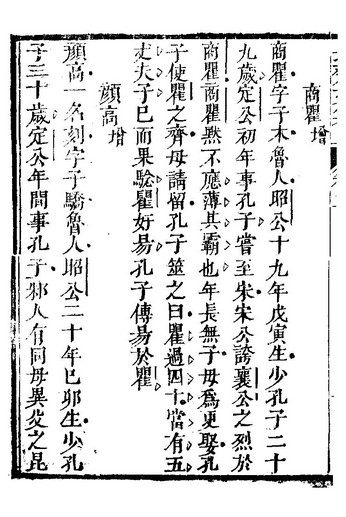 商瞿增
商瞿字子木魯人昭公十九年戊寅生少孔子二十
九歲定公初年事孔子嘗至宋宋公誇襄公之烈於
商瞿商瞿默不應薄其霸也年長無子母爲更娶孔
子使瞿之齊母請留孔子筮之曰瞿過四十當有五
丈夫子已而果驗瞿好易孔子傳易於瞿
顔高增
顔高一名刻字子驕魯人昭公二十年己卯生少孔
子三十歲定公年間事孔子郯人有同母異父之昆